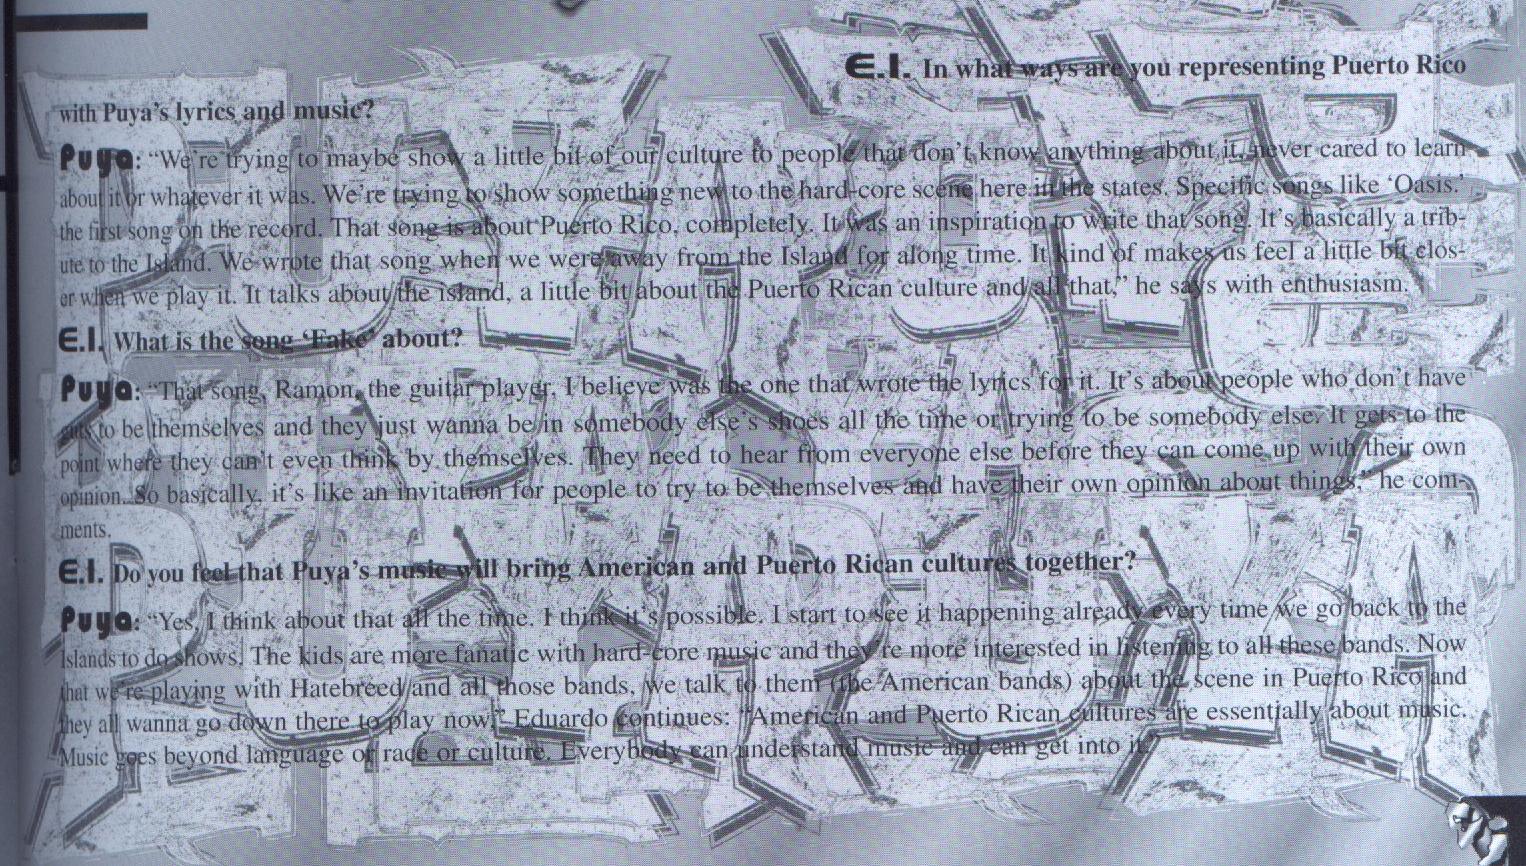 E.I. In what ways are you representing Puerto Rico
with Puya's lyrics and music?
Puya: “We're trying to maybe show a little bit of our culture to people that don't know anything about it, never cared to learn
about it or whatever it was. We're trying to show something new to the hard-core scene here in the states. Specific songs like ‘Oasis.’
the first song on the record. That song is about Puerto Rico, completely. It was an inspiration to write that song. It's basically a trib-
ute to the Island. We wrote that song when we were away from the Island for along time. It kind of makes us feel a little bit clos-
er when we play it. It talks about the island, a little bit about the Puerto Rican culture and all that,” he says with enthusiasm.
E.I. What is the song ‘Fake’ about?
Puya: “That song, Ramon, the guitar player, I believe was the one that wrote the lyrics for it. It's about people who don't have
guts to be themselves and they just wanna be in somebody else's shoes all the time or trying to be somebody else. It gets to the
point where they can't even think by themselves. They need to hear from everyone else before they can come up with their own
opinion. So basically, it's like an invitation for people to try to be themselves and have their own opinion about things,” he com-
ments.
E.I. Do you feel that Puya's music will bring American and Puerto Rican cultures together?
Puya: “Yes, I think about that all the time. I think it's possible. I start to see it happening already every time we go back to the
Islands to do shows. The kids are more fanatic with hard-core music and they're more interested in listening to all these bands. Now
that we're playing with Hatebreed and all those bands, we talk to them (the American bands) about the scene in Puerto Rico and
they all wanna go down there to play now.” Eduardo continues: “American and Puerto Rican cultures are essentially about music.
Music goes beyond language or race or culture. Everybody can understand music and can get into it.”